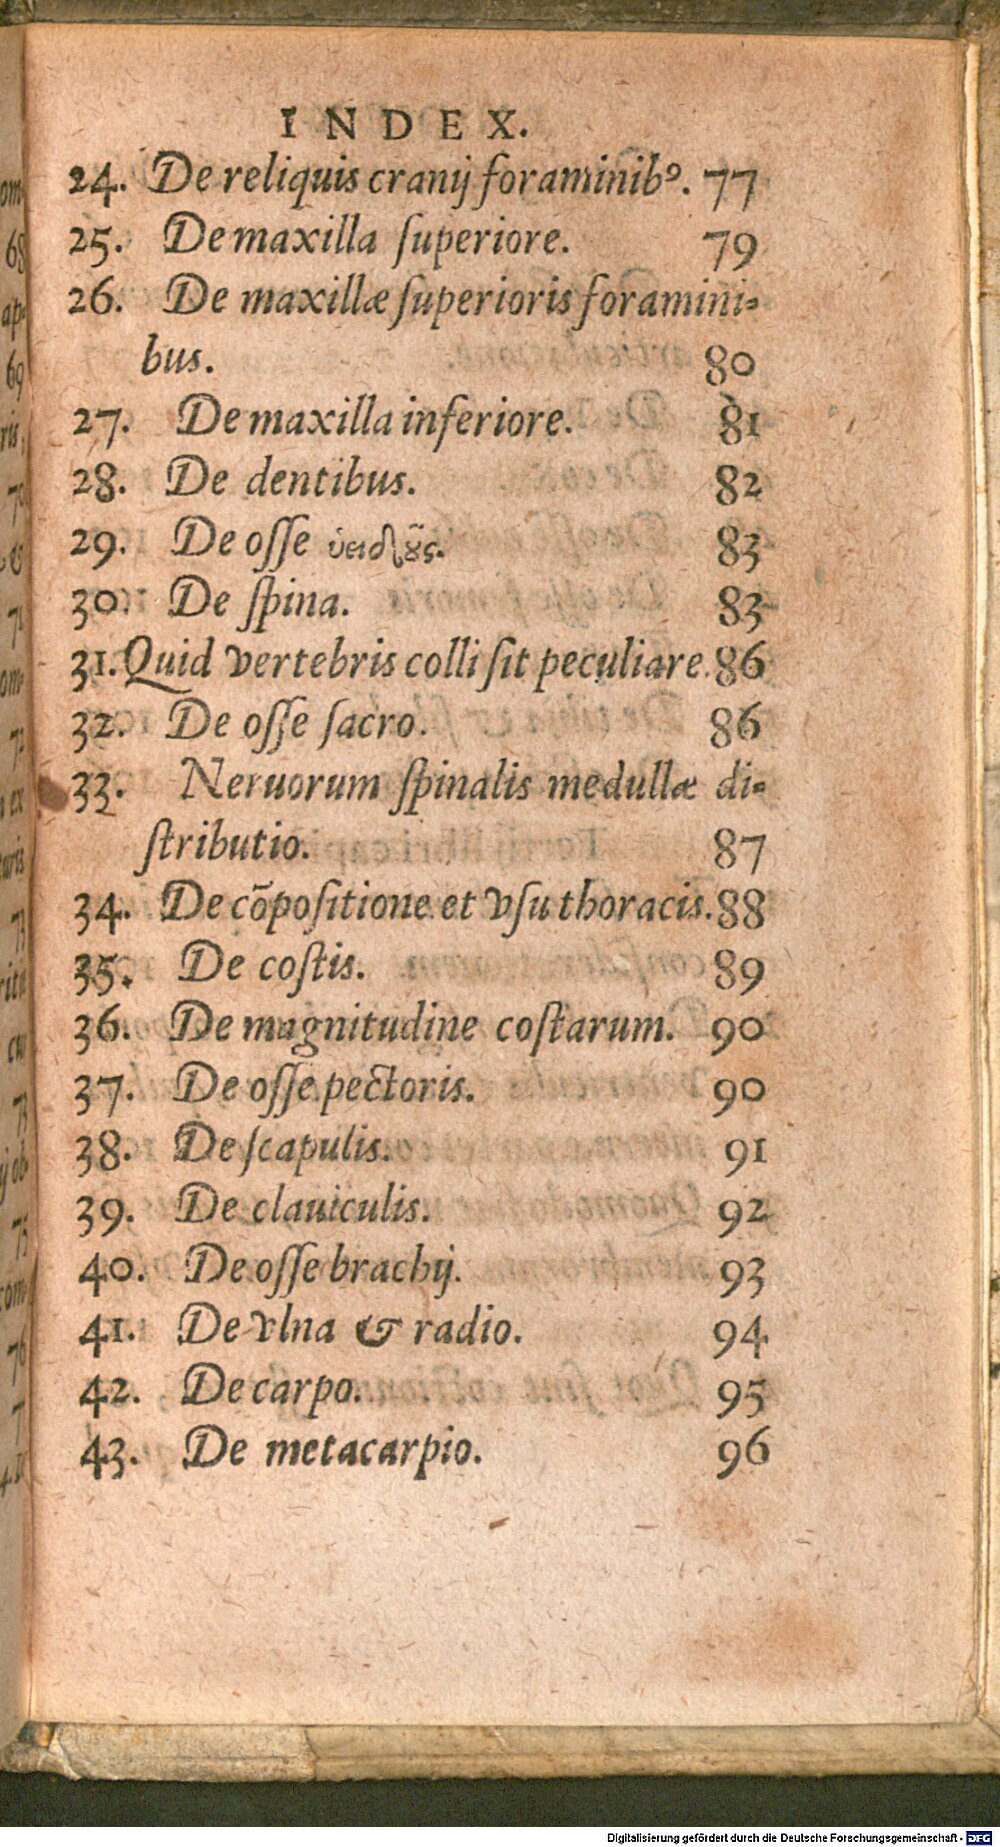 INDEX.
24. De reliquis cranij foraminibꝰ. 77
25. De maxilla ſuperiore. 79
26. De maxillæ ſuperioris foramini-
bus. 80
27. De maxilla inferiore. 81
28. De dentibus. 82
29. De oſſe ὑειδοῦς. 83
30. De ſpina. 83
31. Quid vertebris colli ſit peculiare. 86
32. De oſſe ſacro. 86
33. Neruorum ſpinalis medullæ di-
ſtributio. 87
34. De cõpoſitione et vſu thoracis. 88
35. De coſtis. 89
36. De magnitudine coſtarum. 90
37. De oſſe pectoris. 90
38. De ſcapulis. 91
39. De clauiculis. 92
40. De oſſe brachij. 93
41. De vlna & radio. 94
42. De carpo. 95
43. De metacarpio. 96
Digitalisierung gefördert durch die Deutsche Forschungsgemeinschaft - DFG